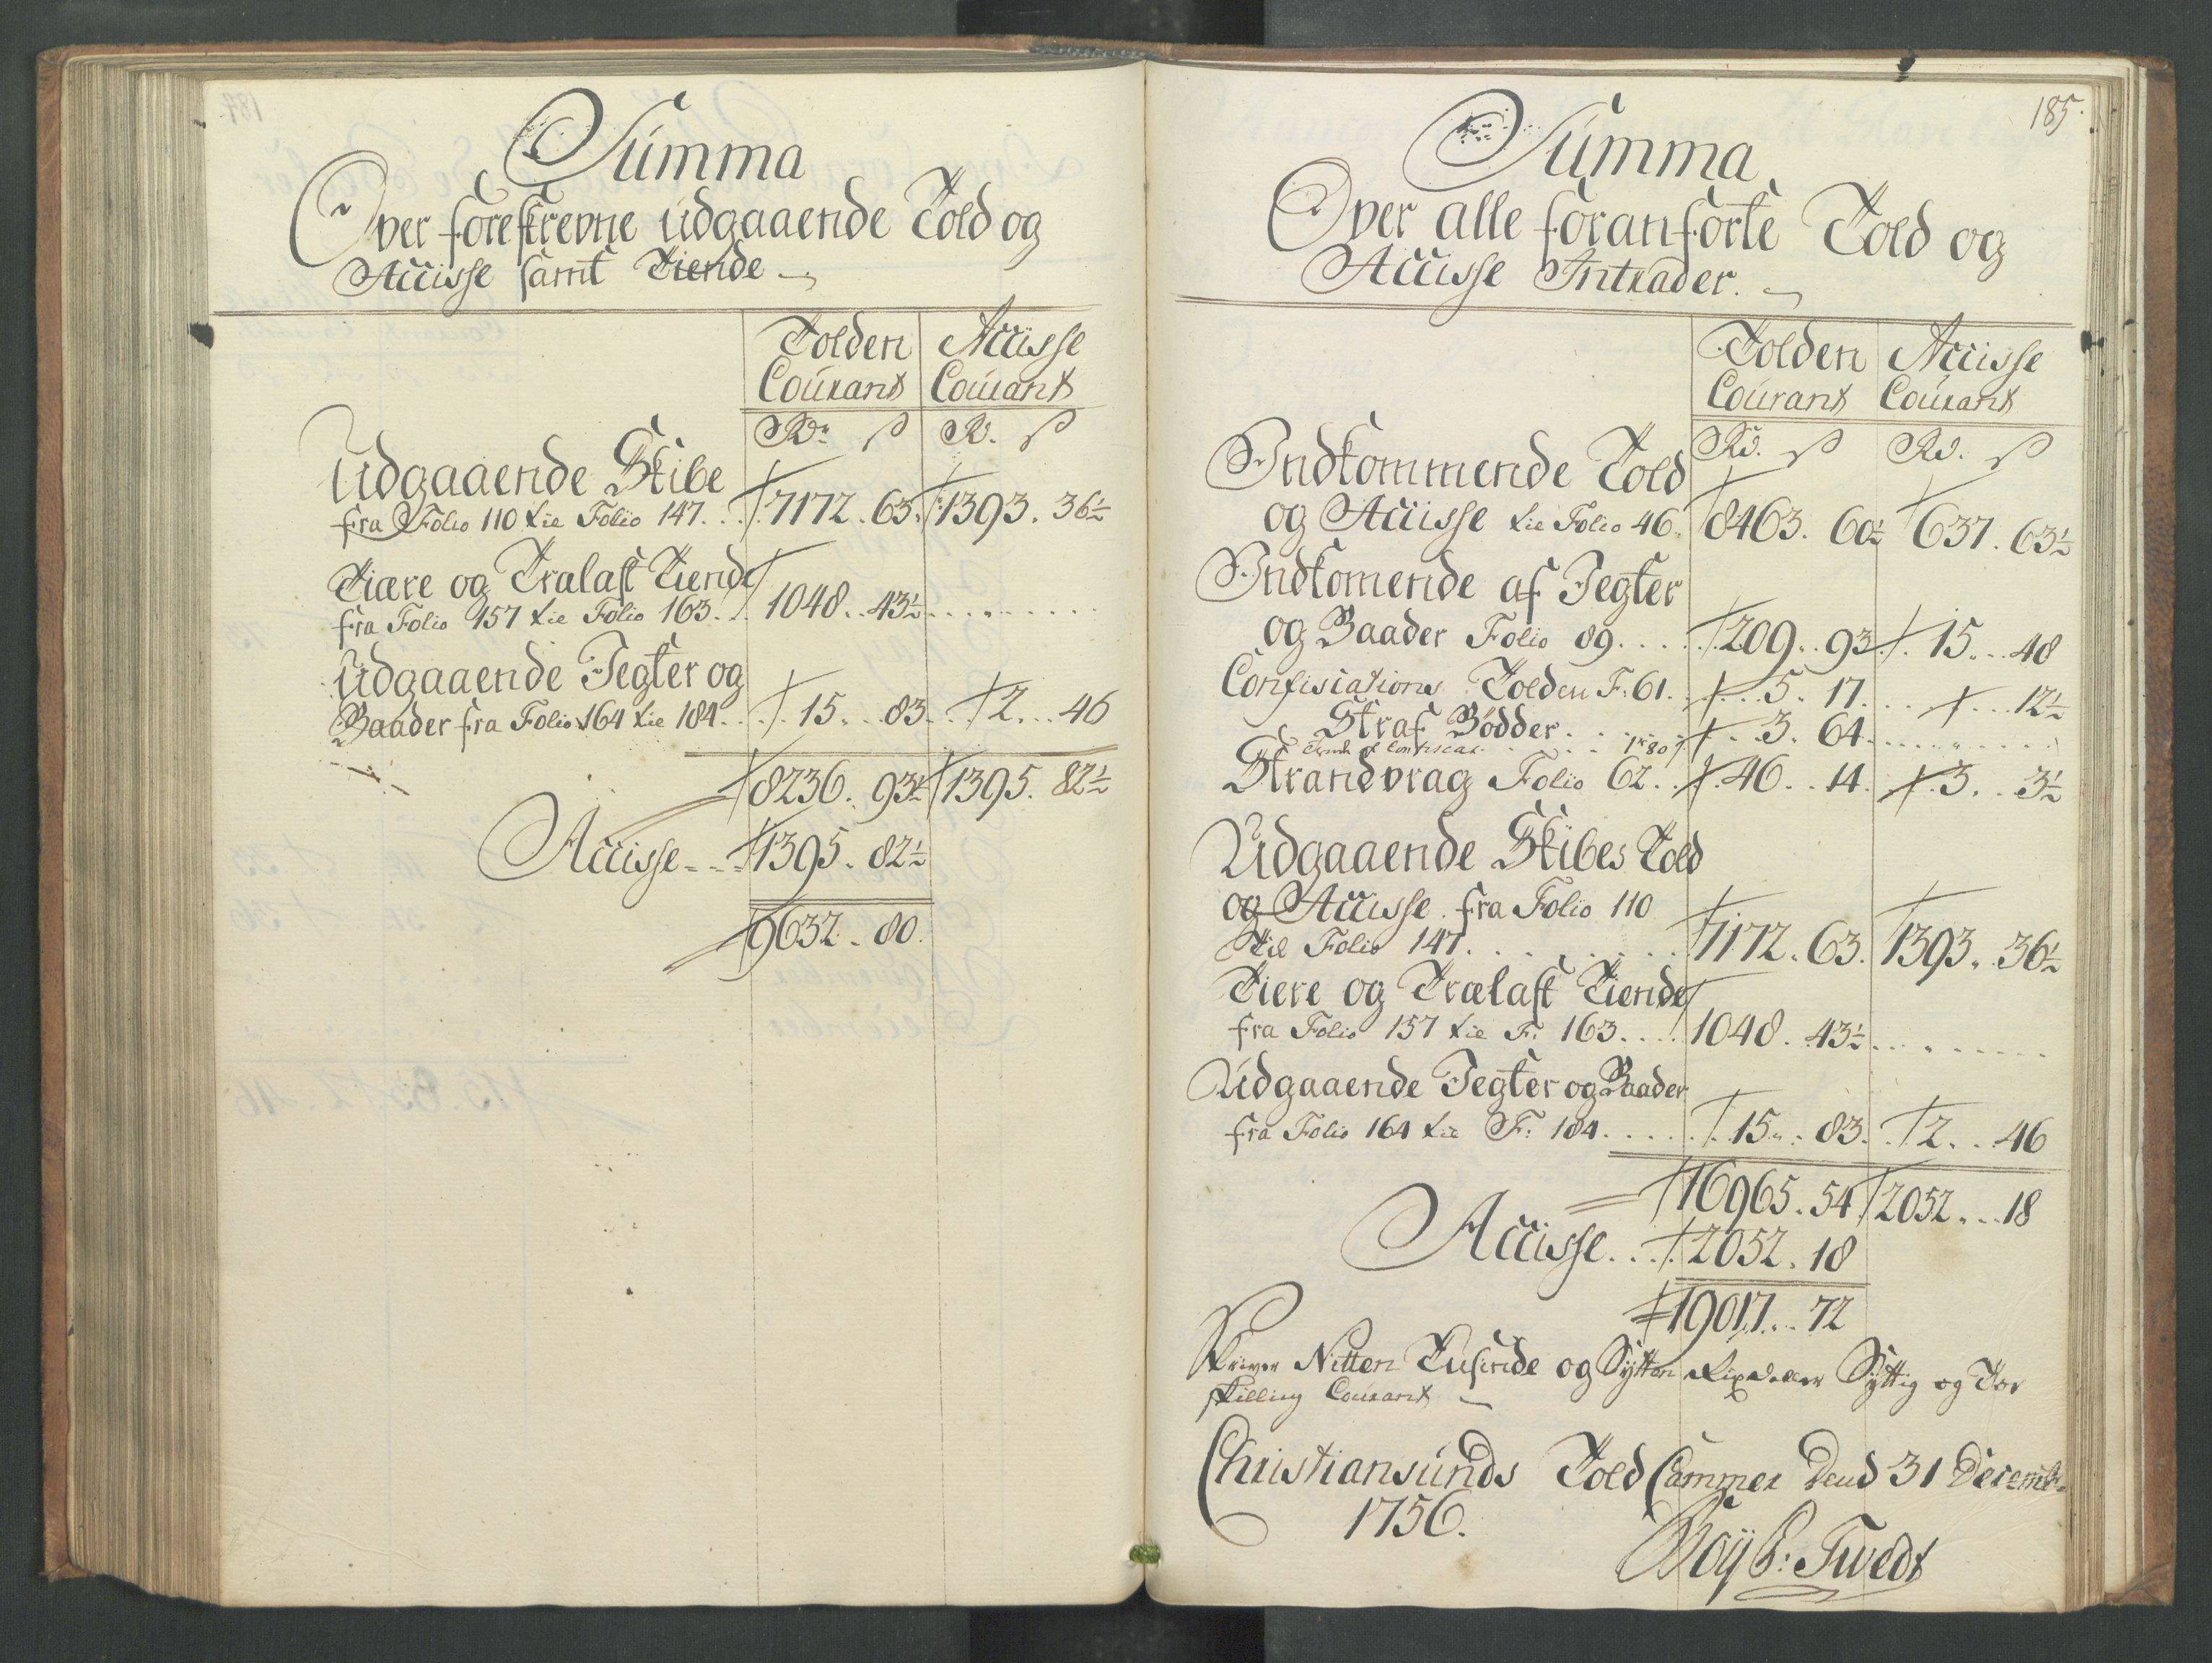 Summa
Over foreskrevne udgaaende Told og
Accisse samt Tiende
Tolden Accisse
Courant Courant
Rd. ß Rd. ß
Udgaaende Skibe
fra Folio 110 til Folio 147. 7172. 63. 1393. 36½
Tiære og Tralast Tiende
fra Folio 157 til Folio 163. 1048. 43½
Udgaaende Jegter og
Baader fra Folio 164 til 184. 15. 83. 2. 46
8236. 93½ 1395. 82½
Accisse 1395. 82½
9632. 80.
185.
Summa
Over alle foranførte Told og
Accisse Intrader.
Tolden Accisse
Courant Courant
Rd. ß Rd. ß
Indkommende Told
og Accisse til Folio 46. 8463. 60½ 637. 63½
Indkomende af Jegter
og Baader Folio 89. 209. 93. 15. 48
Confiscations Tolden F. 61. 5. 17. 12½
Straf Bødder. 3. 64
Confiscat. 1. 80
Strandvrag Folio 62. 46. 14. 3. 3½
Udgaaende Skibes Told
og Accisse fra Folio 110
til Folio 147. 7172. 63. 1393. 36½
Tiere og Trælast Tiende
fra Folio 157 til F. 163. 1048. 43½
Udgaaende Jegter og Baader
fra Folio 164 til F: 184. 15. 83. 2. 46
16965. 54 2052. 18
Accisse. 2052. 18
19017. 72
Skriver Nitten Tusinde og Sytten Rixdaller Syttig og Toe
skilling Courant
Christiansunds Told Cammer Dend 31 Decembr.
1756.
Boÿ B: Twedt